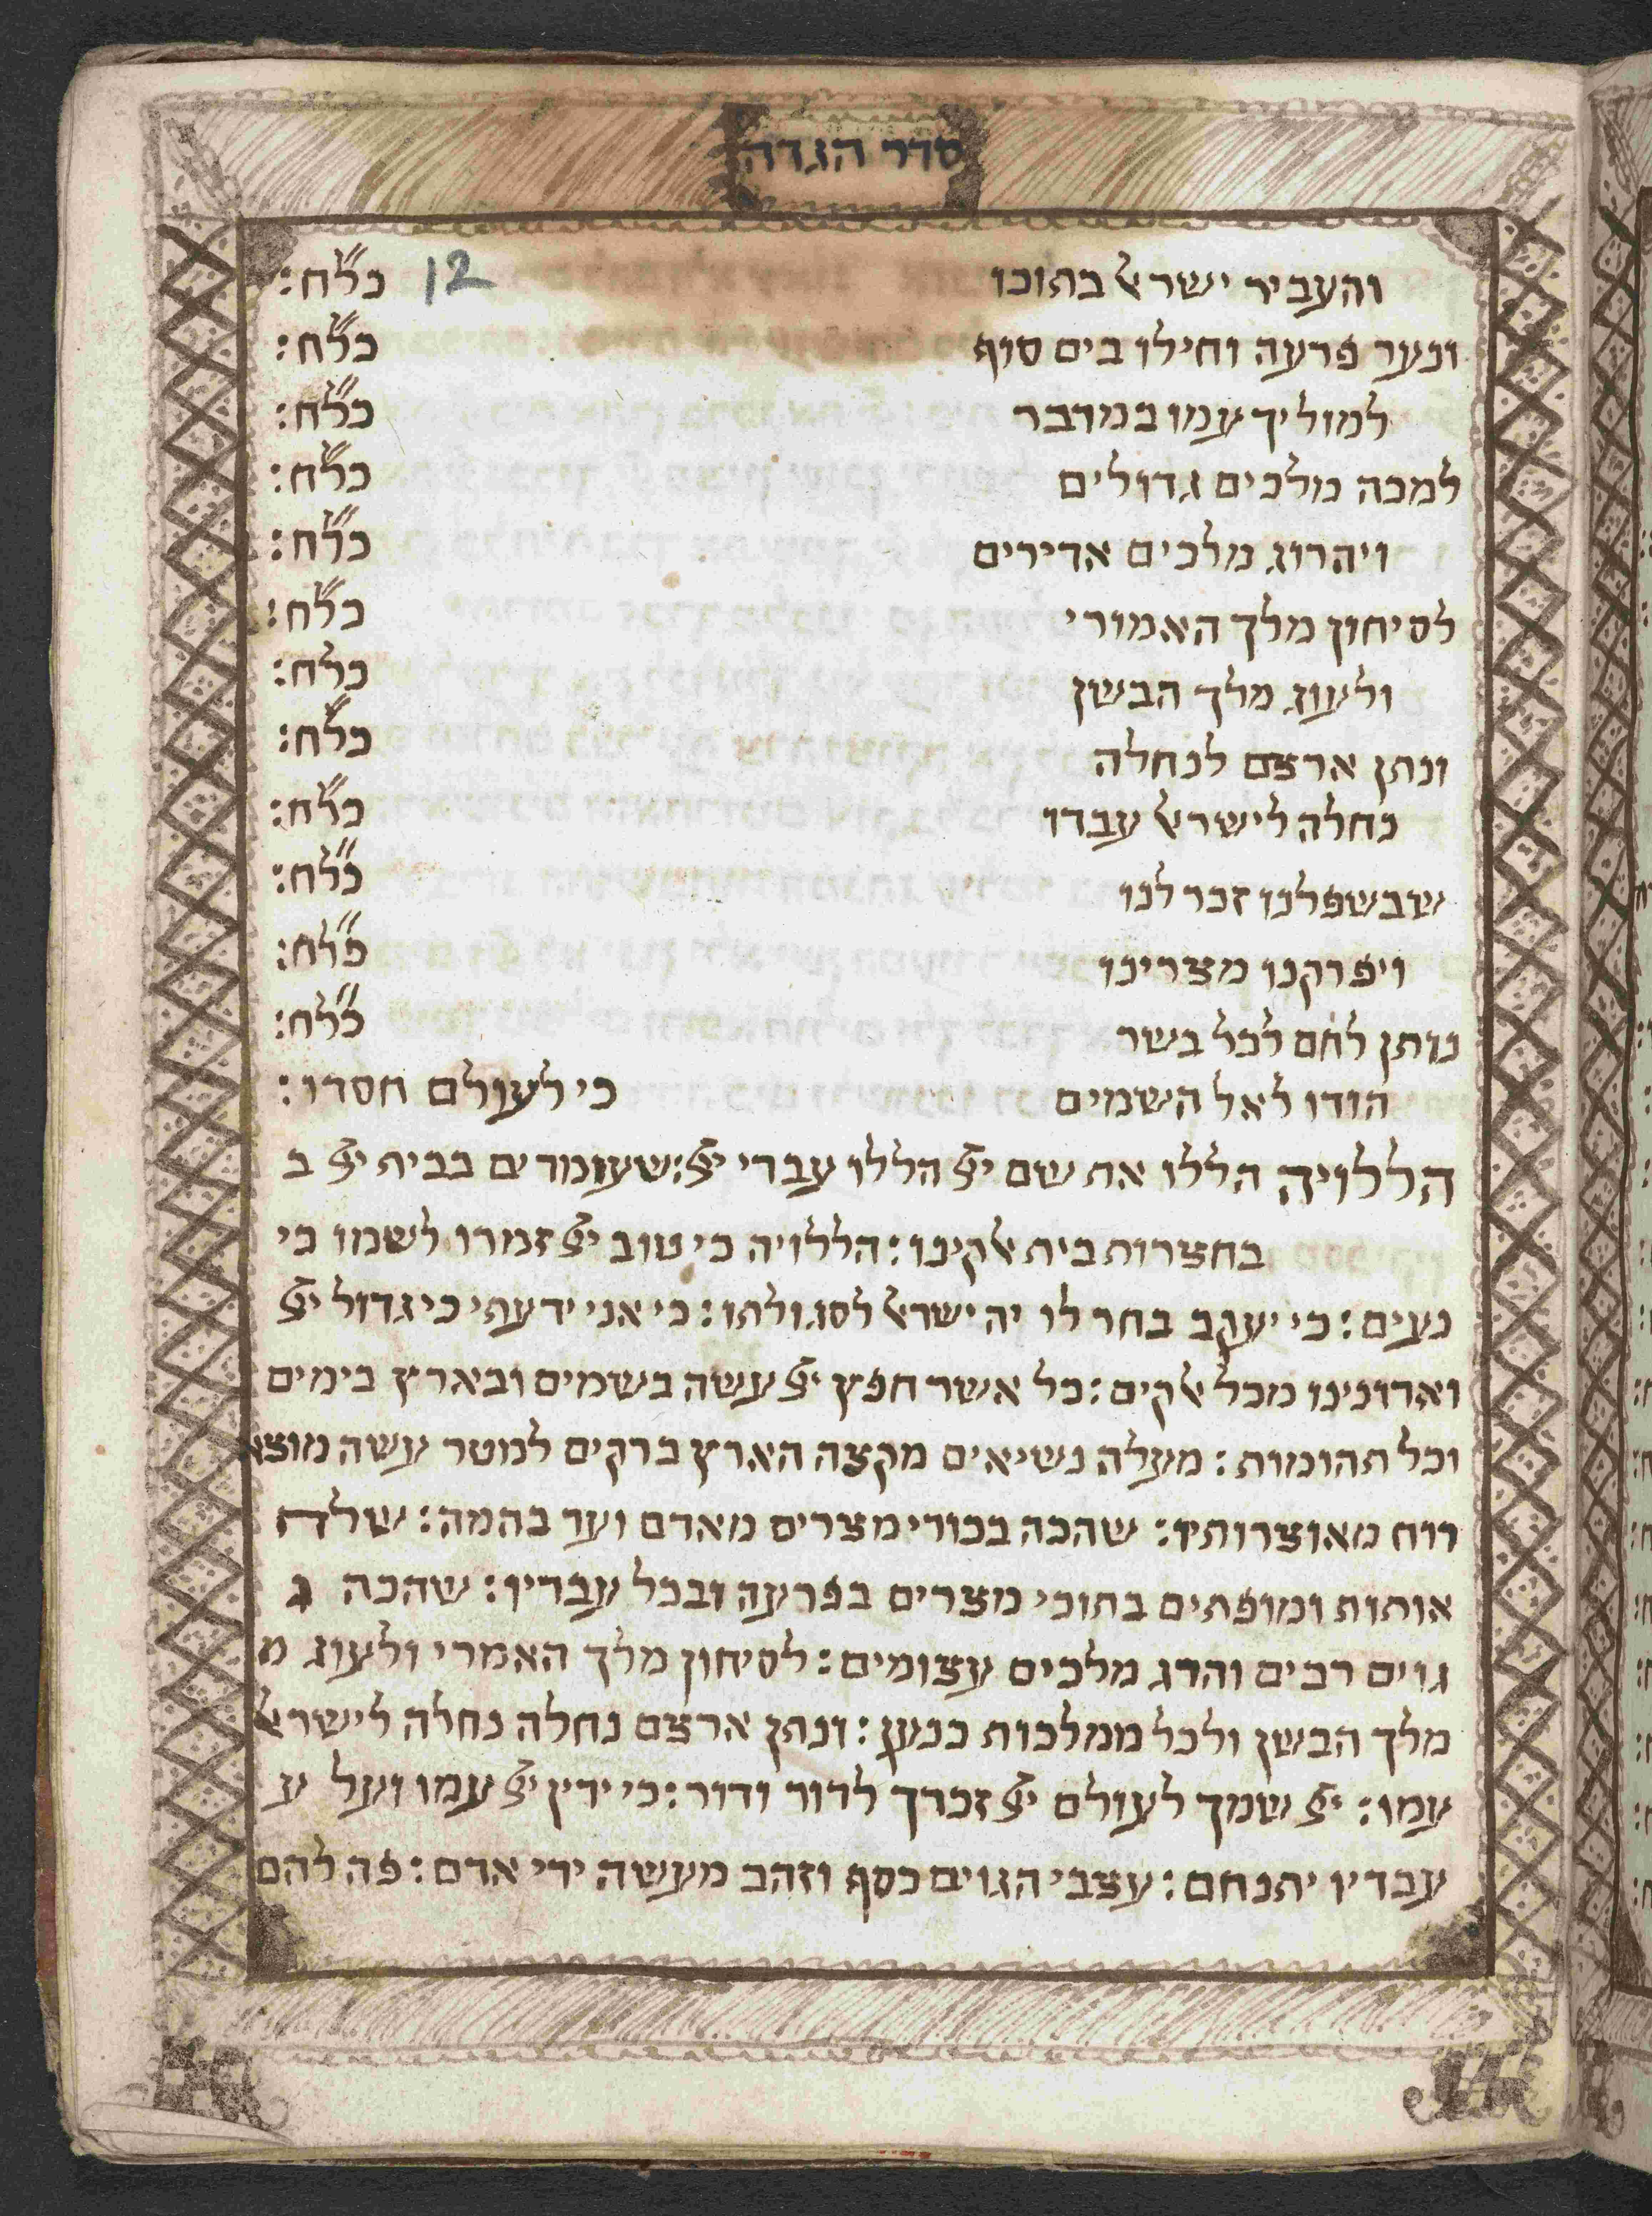 סדר הגדה
12
והעביר ישראל בתוכו כל״ח:
ונער פרעה וחילו בים סוף כל״ח:
למוליך עמו במדבר כל״ח:
למכה מלכים גדולים כל״ח:
ויהרוג מלכים אדירים כל״ח:
לסיחון מלך האמורי כל״ח:
ולעוג מלך הבשן כל״ח:
ונתן ארצם לנחלה כל״ח:
נחלה לישראל עבדו כל״ח:
שבשפלנו זכר לנו כל״ח:
ויפרקנו מצרינו כל״ח:
נותן לחם לכל בשר כל״ח:
הודו לאל השמים כי לעולם חסדו:
הללויה הללו את שם יי הללו עבדי יי: שעומדים בבית יי ב
בחצרות בית אלקינו: הללויה כי טוב יי זמרו לשמו כי
נעים: כי יעקב בחר לו יה ישראל לסגולתו: כי אני ידעתי כי גדול יי
ואדונינו מכל אלקים: כל אשר חפץ יי עשה בשמים ובארץ בימים
וכל תהומות: מעלה נשיאים מקצה הארץ ברקים למטר עשה מוצא
רוח מאוצרותיו: שהכה בכורי מצרים מאדם ועד בהמה: שלח
אותות ומופתים בתוכי מצרים בפרעה ובכל עבדיו: שהכה ג
גוים רבים והרג מלכים עצומים: לסיחון מלך האמרי ולעוג מ
מלך הבשן ולכל ממלכות כנען: ונתן ארצם נחלה נחלה לישראל
עמו: יי שמך לעולם יי זכרך לדור ודור: כי ידין יי עמו ועל ע
עבדיו יתנחם: עצבי הגוים כסף וזהב מעשה ידי אדם: פה להם